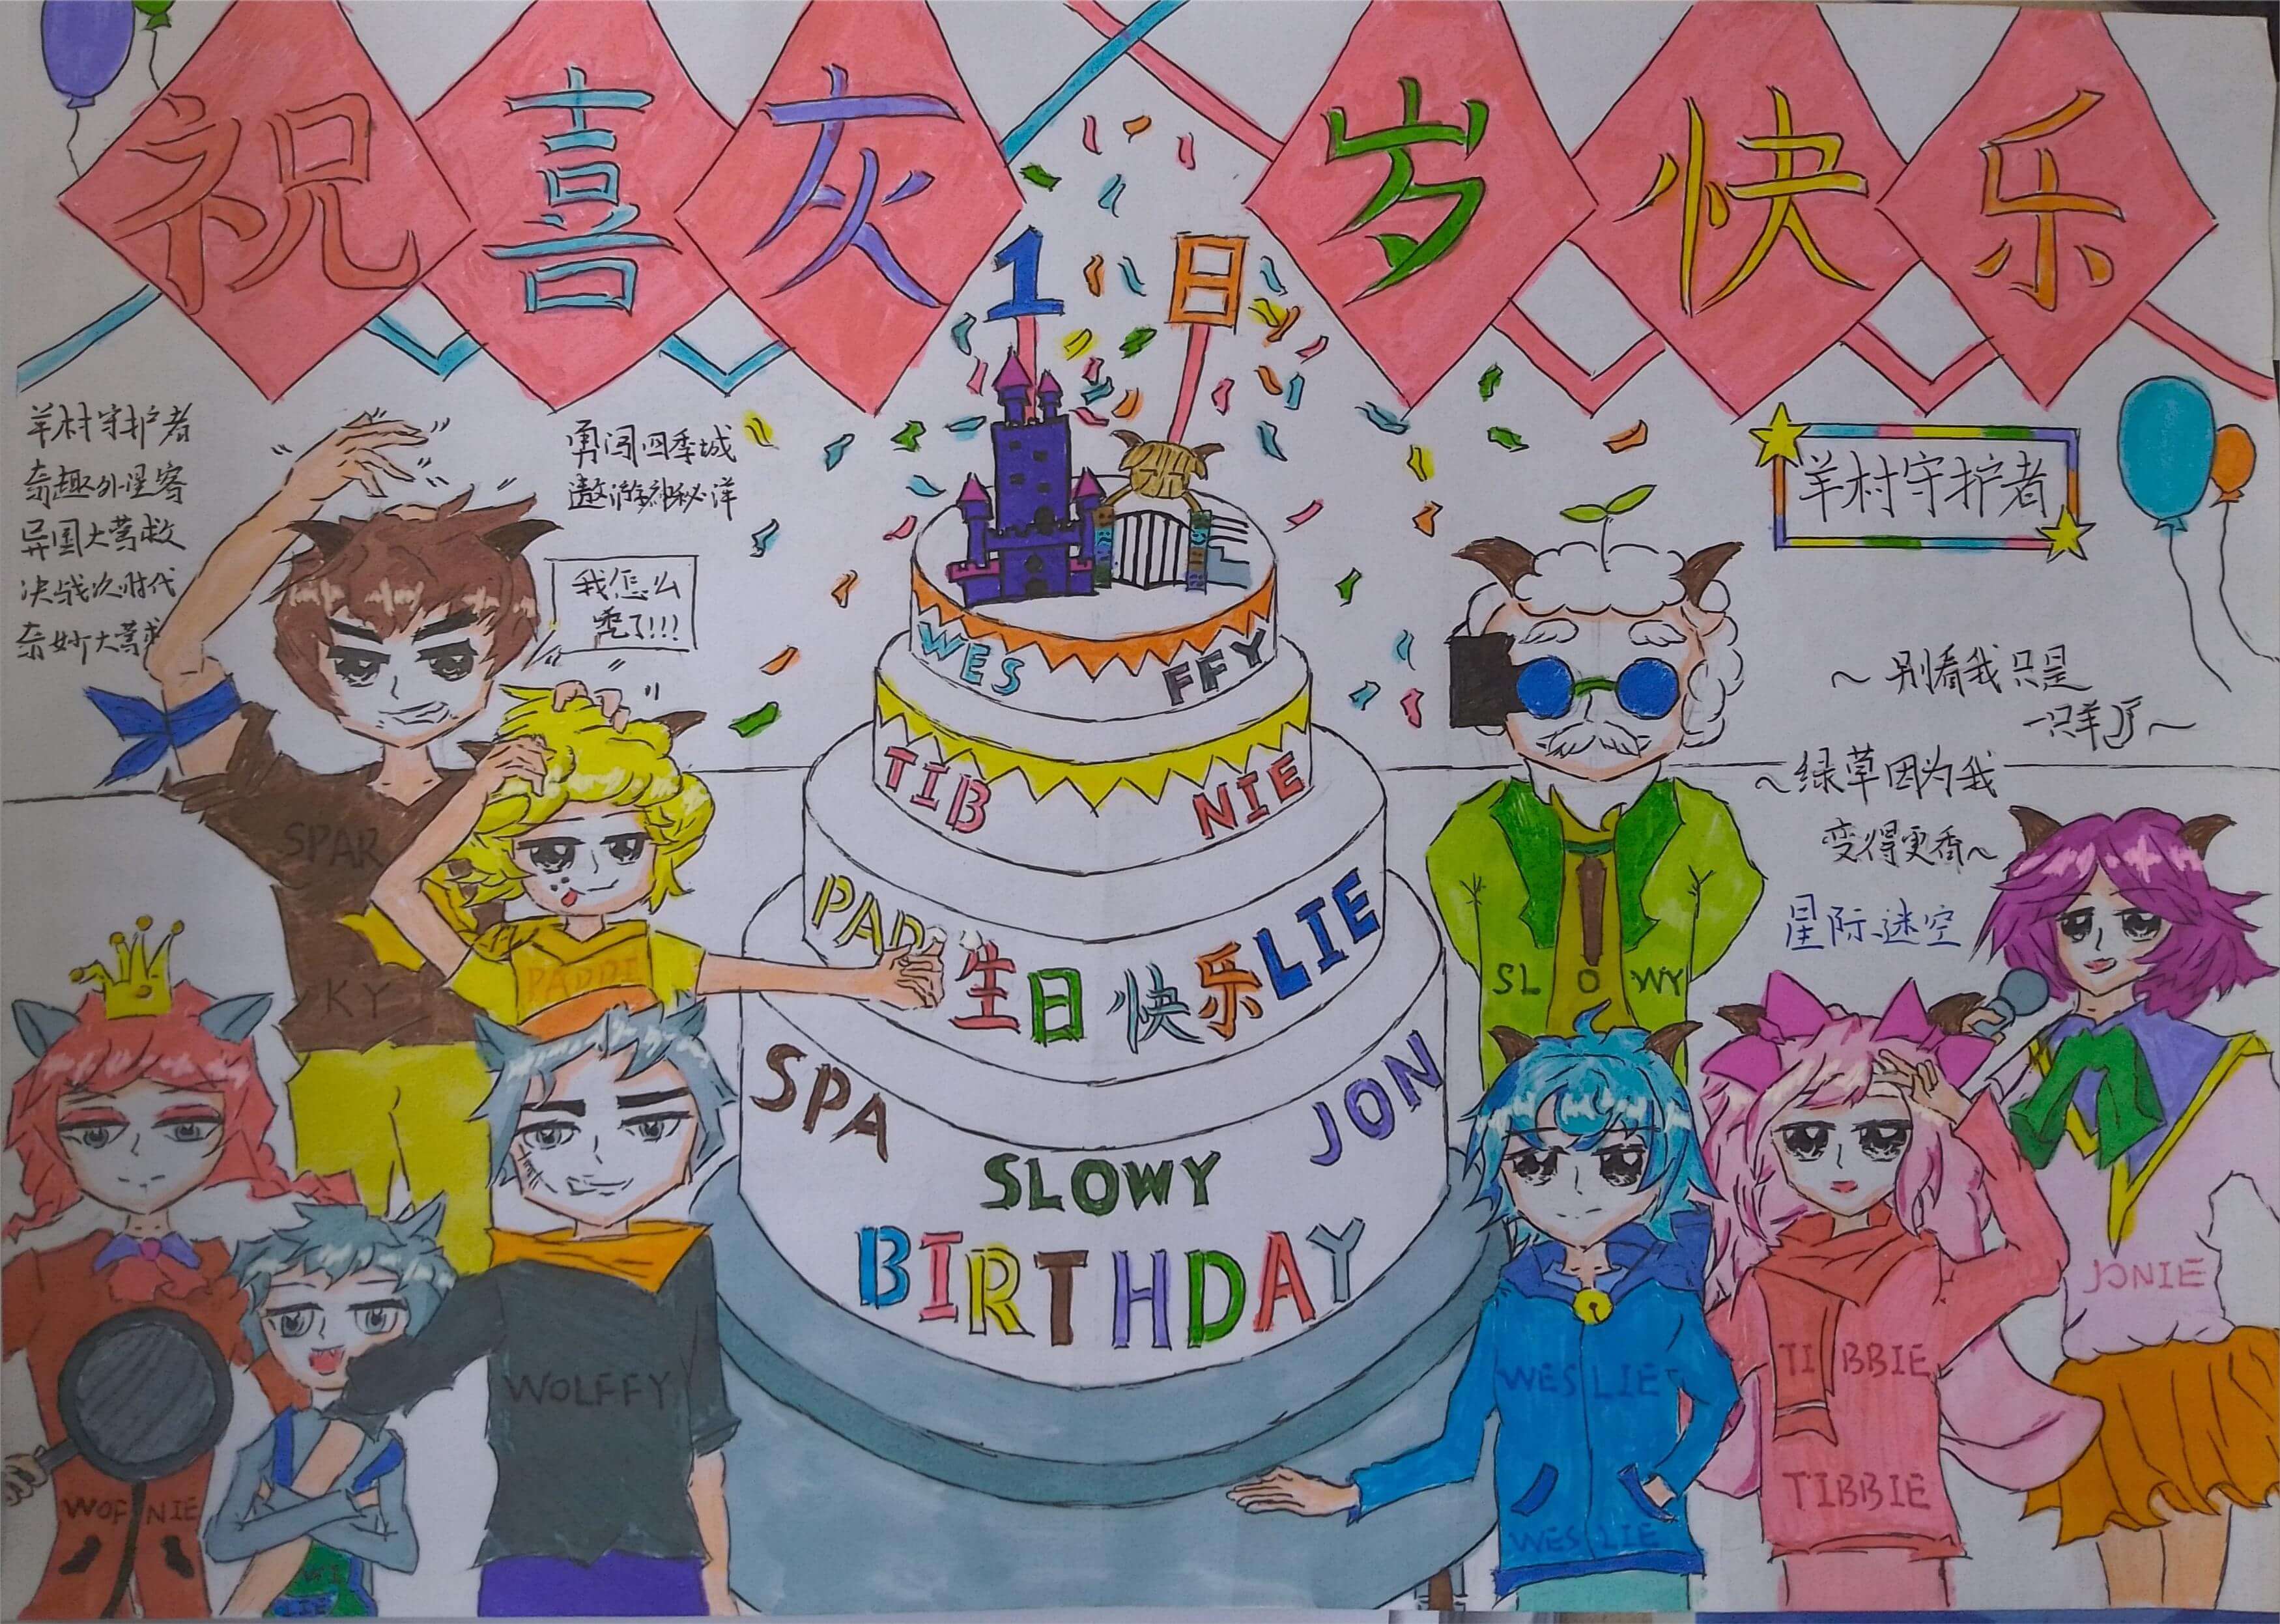 祝喜灰 岁快乐
1日
羊村守护者
奇趣外星客
异国大营救
决战次时代
奇妙大营救
勇闯四季城
遨游神秘洋
我怎么
秃了!!!
羊村守护者
~别看我只是
一只羊~
~绿草因为我
变得更香~
星际迷空
WES FFY
TIB NIE
PAD LIE
生日快乐
SPA JON
SLOWY
BIRTHDAY
SPAR
KY
PADDI
SLOWY
JONIE
WOLFFY
WESLIE
TIBBIE
TIBBIE
WOFNIE
WESLIE
WI
LIE